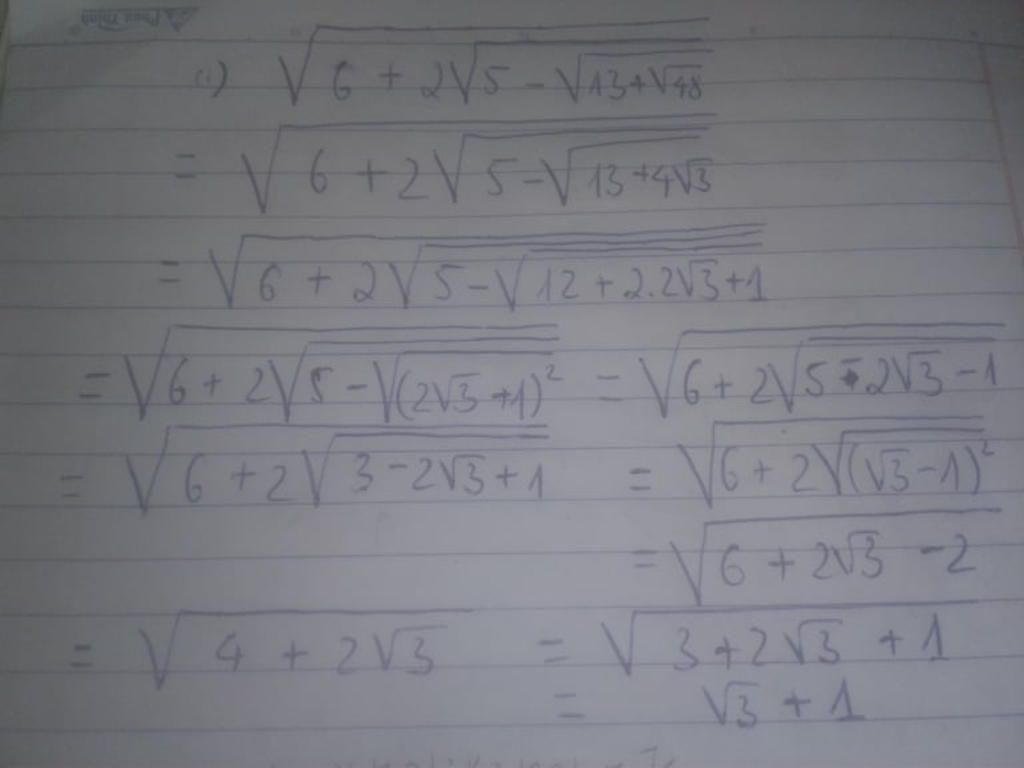 c) √(6 + 2√(5 - √(13 + √48)))
= √(6 + 2√(5 - √(13 + 4√3)))
= √(6 + 2√(5 - √(12 + 2.2√3 + 1)))
= √(6 + 2√(5 - √((2√3 + 1)²))) = √(6 + 2√(5 - 2√3 - 1))
= √(6 + 2√(3 - 2√3 + 1)) = √(6 + 2√((√3 - 1)²))
= √(6 + 2√3 - 2)
= √(4 + 2√3) = √(3 + 2√3 + 1)
= √3 + 1